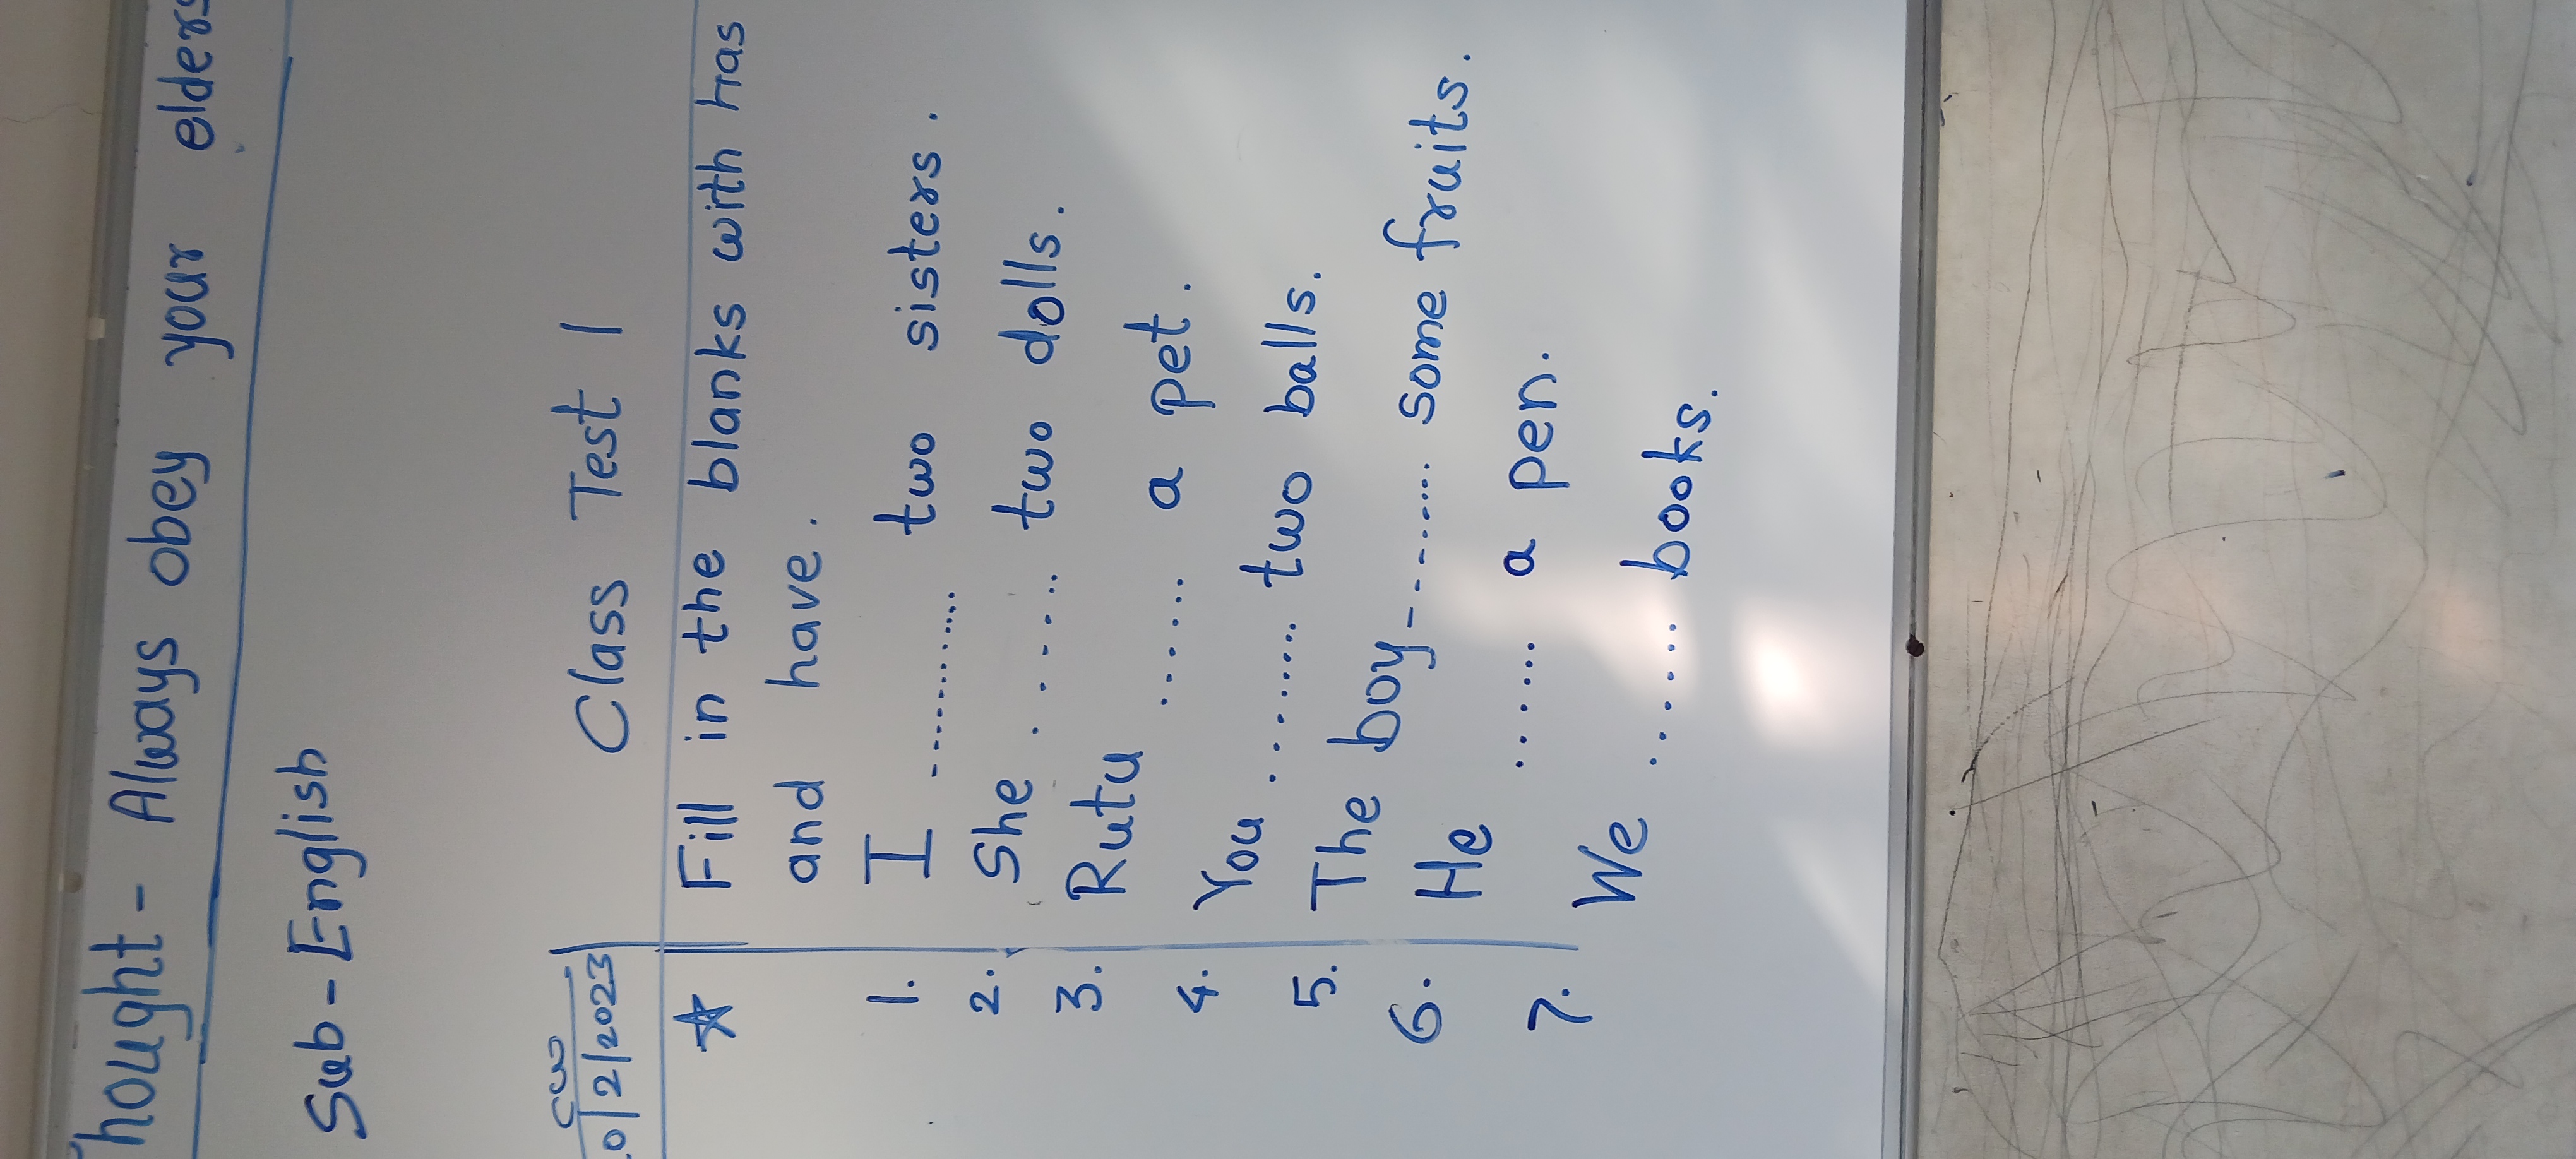 hought - Always obey your elders
Sub - English
cw
0/2/2023 Class Test 1
☆ Fill in the blanks with has
and have.
1. I ............ two sisters.
2. She ...... two dolls.
3. Rutu ...... a pet.
4. You ........ two balls.
5. The boy-------- some fruits.
6. He ....... a pen.
7. We ...... books.